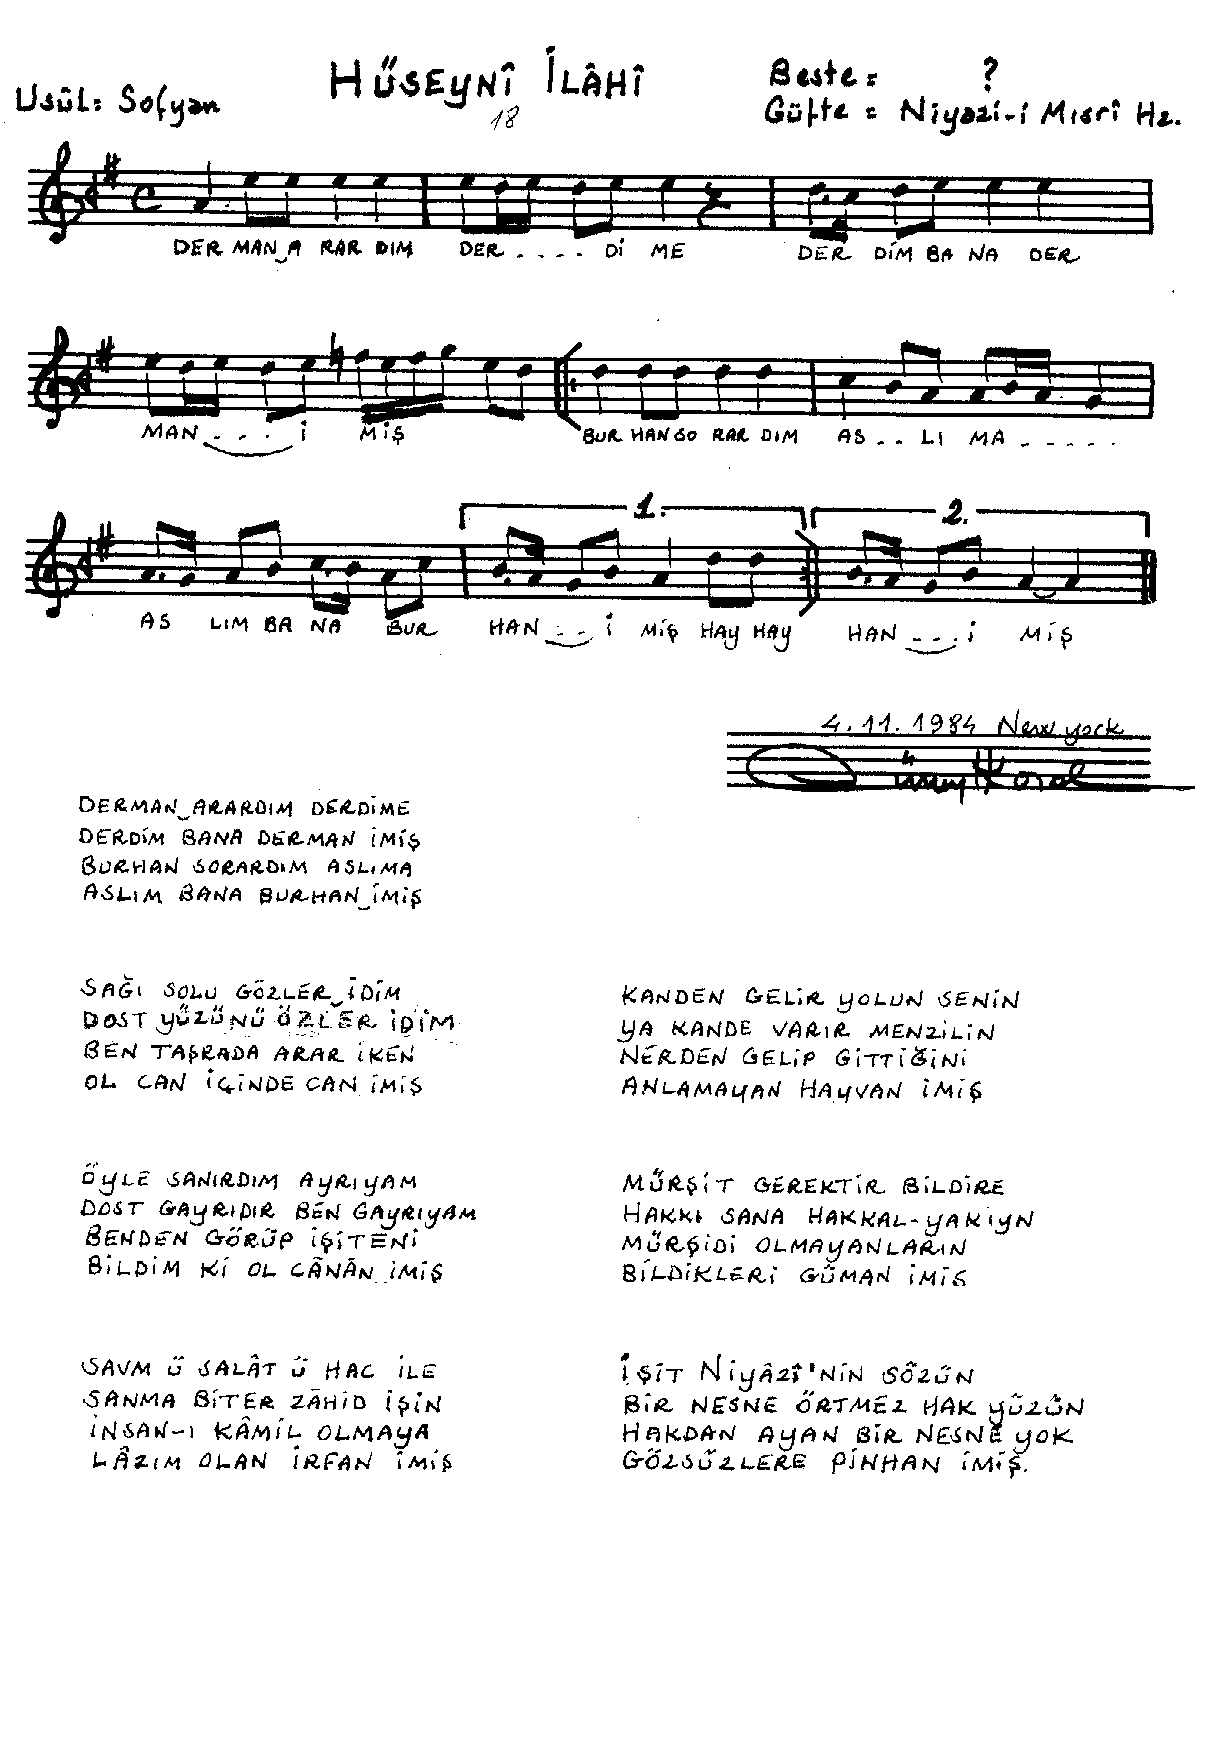 HÜSEYNÎ İLÂHÎ
18
Usûl: Sofyan
Beste = ?
Güfte = Niyazi-i Mısrî Hz.
DER MAN_A RAR DIM DER . . . . Dİ ME DER DİM BA NA DER
MAN . . . . İ MİŞ BUR HAN SO RAR DIM AS . . LI MA . . . . .
1. 2.
AS LIM BA NA BUR HAN . . . İ MİŞ HAY HAY HAN . . . İ MİŞ
4.11.1984 New york
DERMAN_ARARDIM DERDİME
DERDİM BANA DERMAN İMİŞ
BURHAN SORARDIM ASLIMA
ASLIM BANA BURHAN_İMİŞ
SAĞI SOLU GÖZLER_İDİM
DOST YÜZÜNÜ ÖZLER İDİM
BEN TAŞRADA ARAR İKEN
OL CAN İÇİNDE CAN İMİŞ
ÖYLE SANIRDIM AYRIYAM
DOST GAYRIDIR BEN GAYRIYAM
BENDEN GÖRÜP İŞİTENİ
BİLDİM Kİ OL CÂNÂN İMİŞ
SAVM Ü SALÂT Ü HAC İLE
SANMA BİTER ZÂHİD İŞİN
İNSAN-I KÂMİL OLMAYA
LÂZIM OLAN İRFAN İMİŞ
KANDEN GELİR YOLUN SENİN
YA KANDE VARIR MENZİLİN
NERDEN GELİP GİTTİĞİNİ
ANLAMAYAN HAYVAN İMİŞ
MÜRŞİT GEREKTİR BİLDİRE
HAKKI SANA HAKKAL-YAKIYN
MÜRŞİDİ OLMAYANLARIN
BİLDİKLERİ GÜMAN İMİŞ
İŞİT NİYÂZÎ'NİN SÖZÜN
BİR NESNE ÖRTMEZ HAK YÜZÜN
HAKDAN AYAN BİR NESNE YOK
GÖZSÜZLERE PİNHAN İMİŞ.